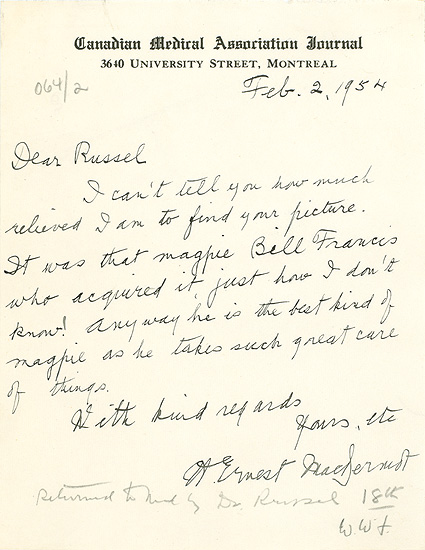 Canadian Medical Association Journal
3640 UNIVERSITY STREET, MONTREAL
064/2
Feb. 2, 1954
Dear Russel
I can't tell you how much
relieved I am to find your picture.
It was that magpie Bill Francis
who acquired it, just how I don't
know! Anyway he is the best kind of
magpie as he takes such great care
of things.
With kind regards
Yours, etc
H. Ernest MacDermot
Returned to by Dr. Russel 18th
W.W.F.